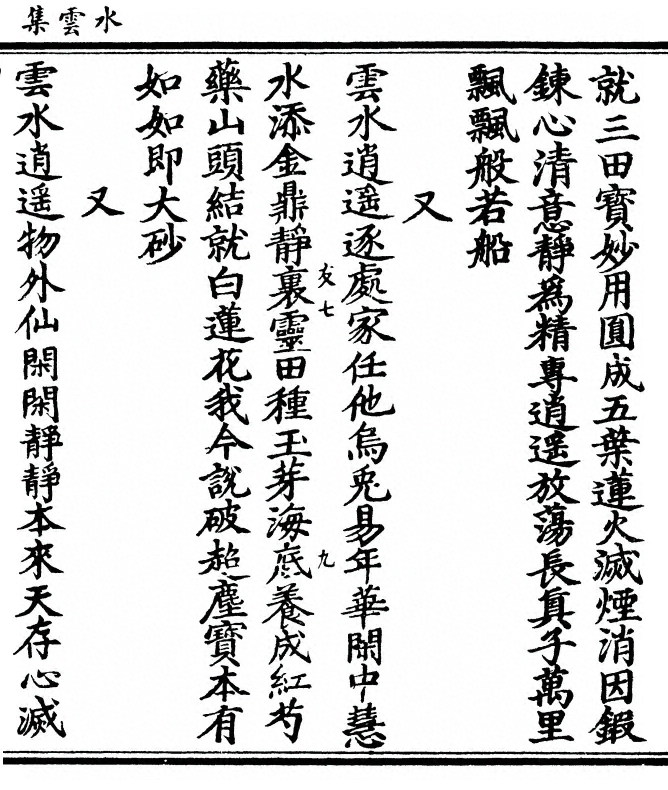 水雲集
就三田寶妙用圓成五葉蓮火滅煙消因鍜
鍊心清意靜為精專逍遥放蕩長真子萬里
飄飄般若船
又
雲水逍遥逐處家任他烏兎易年華閑中慧
友七
九
水添金鼎靜裏靈田種玉芽海底養成紅芍
藥山頭結就白蓮花我今說破超塵寶本有
如如即大砂
又
雲水逍遥物外仙閑閑靜靜本來天存心滅